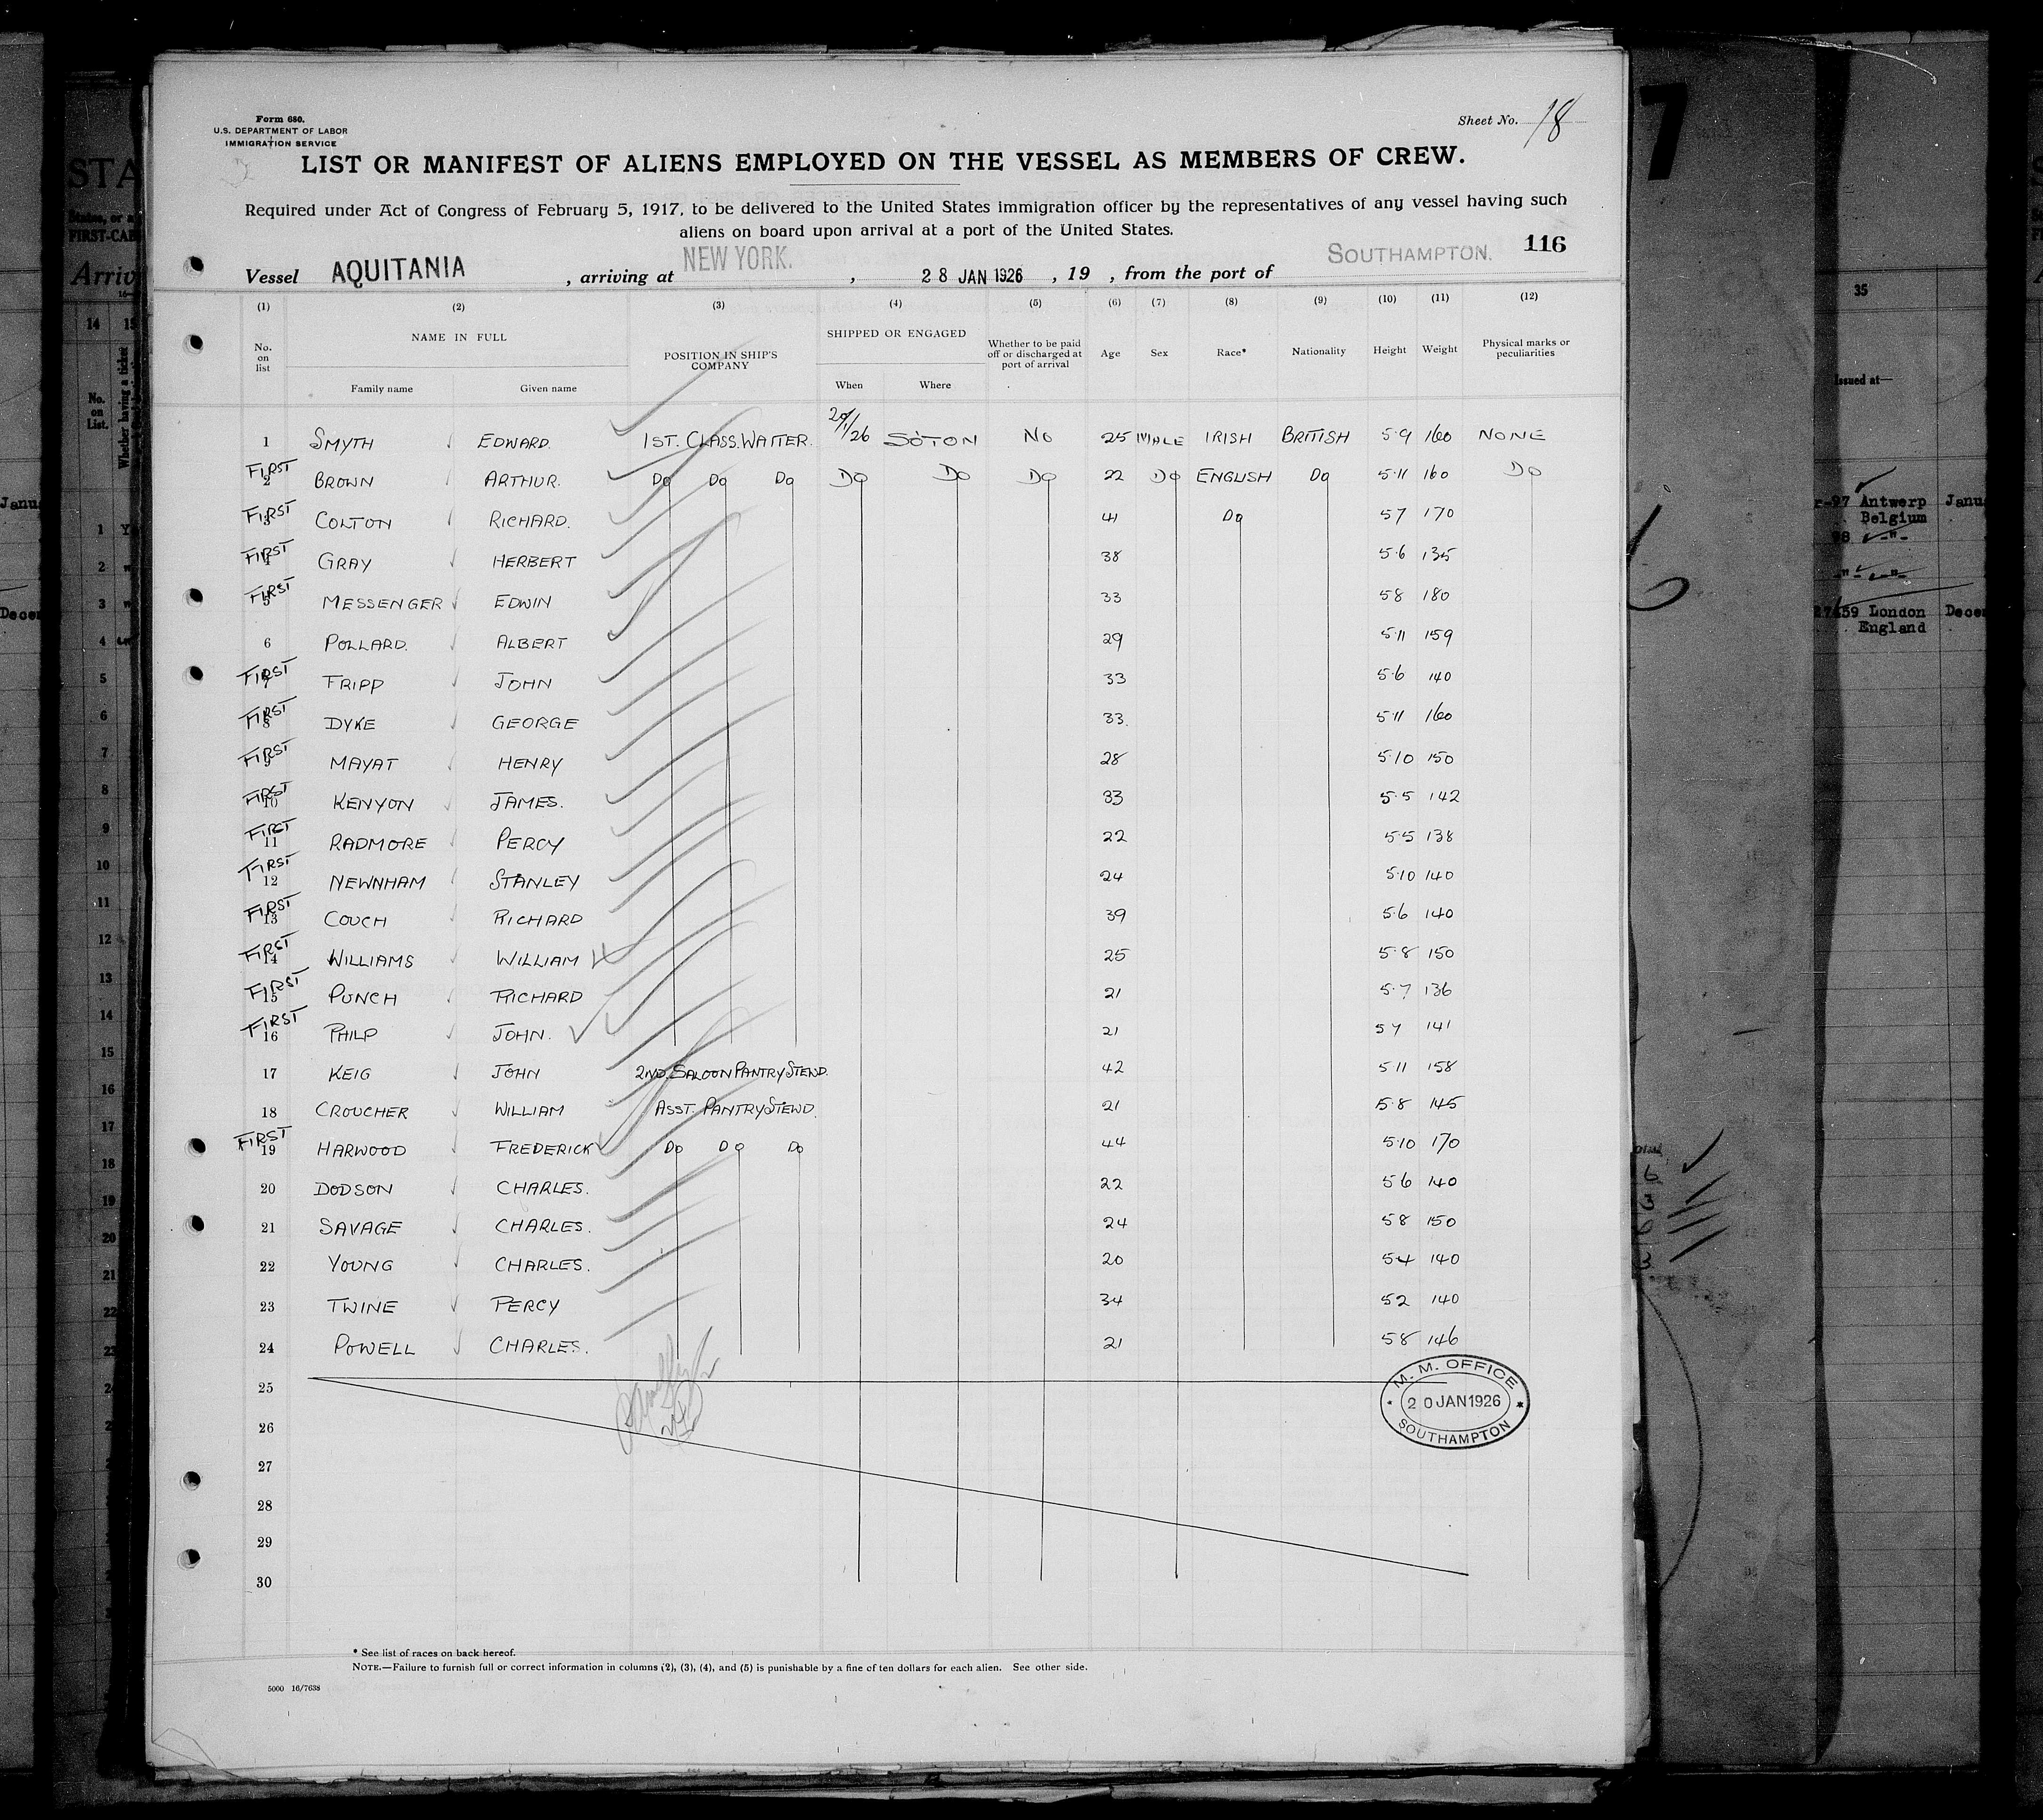 Form 680.
U.S. DEPARTMENT OF LABOR
IMMIGRATION SERVICE
Sheet No. 18
LIST OR MANIFEST OF ALIENS EMPLOYED ON THE VESSEL AS MEMBERS OF CREW.
Required under Act of Congress of February 5, 1917, to be delivered to the United States immigration officer by the representatives of any vessel having such
aliens on board upon arrival at a port of the United States.
116
Vessel AQUITANIA, arriving at NEW YORK., 28 JAN 1926, 19 , from the port of SOUTHAMPTON.
(1) (2) (3) (4) (5) (6) (7) (8) (9) (10) (11) (12)
No. on list NAME IN FULL POSITION IN SHIP'S COMPANY SHIPPED OR ENGAGED Whether to be paid off or discharged at port of arrival Age Sex Race* Nationality Height Weight Physical marks or peculiarities
Family name Given name When Where
1 SMYTH EDWARD. 1ST. CLASS. WAITER. 20/1/26 SO'TON NO 25 MALE IRISH BRITISH 5·9 160 NONE
FIRST 2 BROWN ARTHUR. Do Do Do Do Do Do 22 Do ENGLISH Do 5·11 160 Do
FIRST 3 COLTON RICHARD. 41 Do 5 7 170
FIRST 4 GRAY HERBERT 38 5·6 135
FIRST 5 MESSENGER EDWIN 33 5 8 180
6 POLLARD. ALBERT 29 5·11 159
FIRST 7 FRIPP JOHN 33 5·6 140
FIRST 8 DYKE GEORGE 33. 5·11 160
FIRST 9 MAYAT HENRY 28 5·10 150
FIRST 10 KENYON JAMES. 33 5·5 142
FIRST 11 RADMORE PERCY 22 5·5 138
FIRST 12 NEWNHAM STANLEY 24 5·10 140
FIRST 13 COUCH RICHARD 39 5·6 140
FIRST 14 WILLIAMS WILLIAM 25 5·8 150
FIRST 15 PUNCH RICHARD 21 5·7 136
FIRST 16 PHILP JOHN. 21 5 7 141
17 KEIG JOHN 2ND. SALOON PANTRY STEWD. 42 5 11 158
18 CROUCHER WILLIAM ASST. PANTRY STEWD. 21 5·8 145
FIRST 19 HARWOOD FREDERICK Do Do Do 44 5·10 170
20 DODSON CHARLES. 22 5 6 140
21 SAVAGE CHARLES. 24 5 8 150
22 YOUNG CHARLES. 20 5 4 140
23 TWINE PERCY 34 5 2 140
24 POWELL CHARLES. 21 5 8 146
25
26
27
28
29
30
M. M. OFFICE
20 JAN 1926
SOUTHAMPTON
* See list of races on back hereof.
NOTE.—Failure to furnish full or correct information in columns (2), (3), (4), and (5) is punishable by a fine of ten dollars for each alien. See other side.
5000 16/7638
35
Issued at—
Antwerp
Belgium
London
England